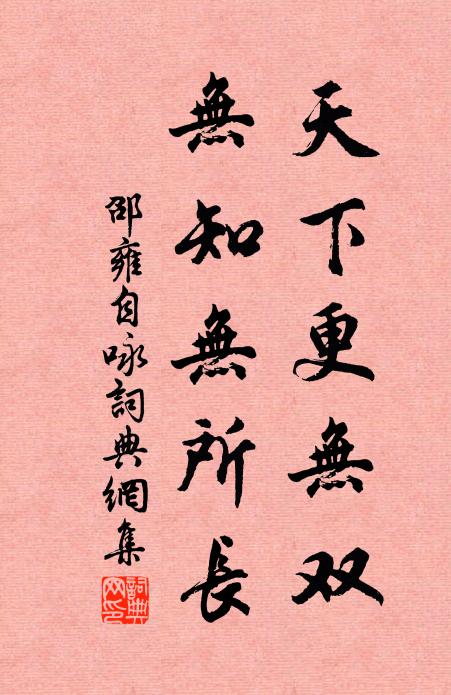 天下更無双
無知無所長
邵雍自咏詞典網集
詞典網印